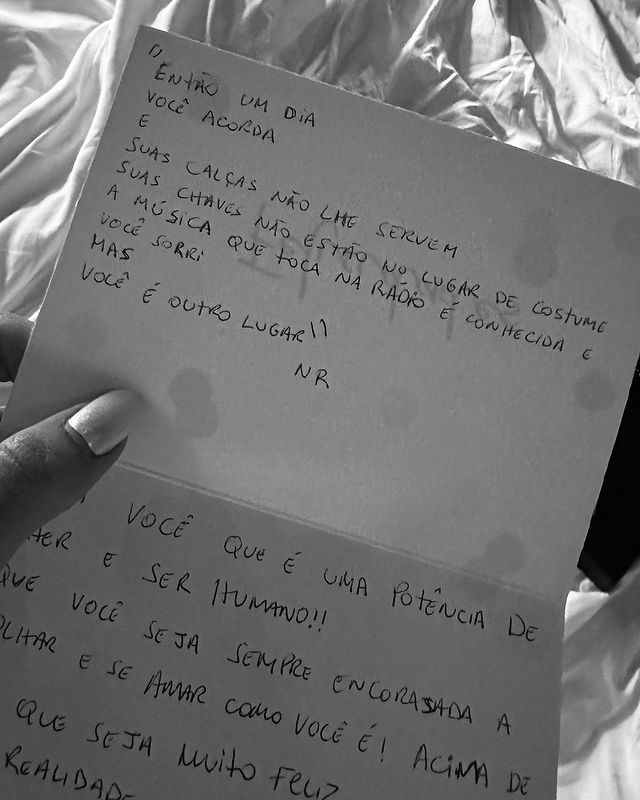 "ENTÃO UM DIA
VOCÊ ACORDA
E
SUAS CALÇAS NÃO LHE SERVEM
SUAS CHAVES NÃO ESTÃO NO LUGAR DE COSTUME
A MÚSICA QUE TOCA NA RÁDIO É CONHECIDA E
VOCÊ SORRI
MAS
VOCÊ É OUTRO LUGAR"
NR
VOCÊ QUE É UMA POTÊNCIA DE
HER E SER HUMANO!!
QUE VOCÊ SEJA SEMPRE ENCORAJADA A
OLHAR E SE AMAR COMO VOCÊ É! ACIMA DE
QUE SEJA MUITO FELIZ
REALIDADE